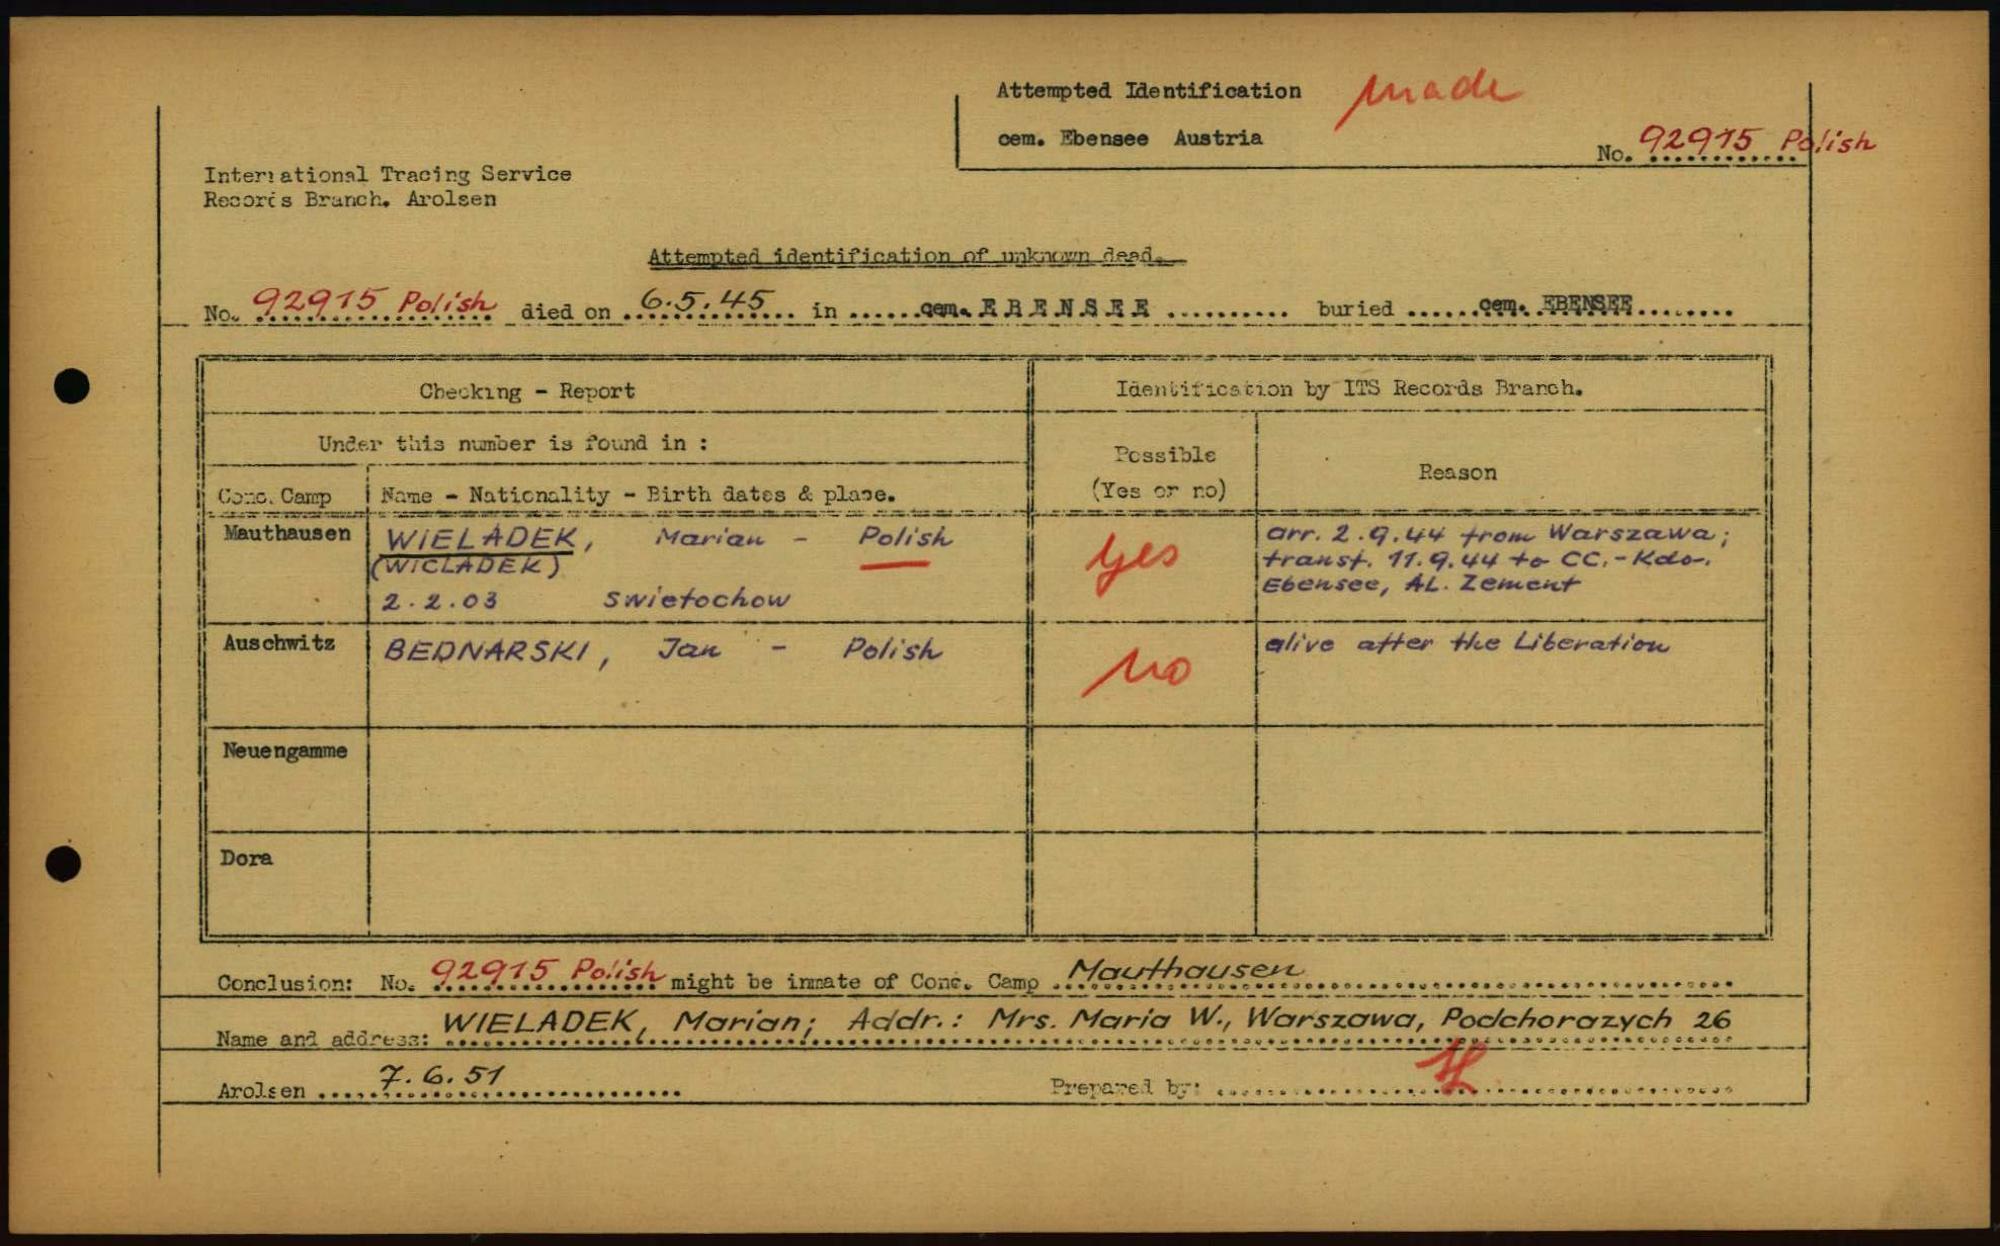 Attempted Identification made
cem. Ebensee Austria
No. 92915 Polish
International Tracing Service
Records Branch. Arolsen
Attempted identification of unknown dead.
No. 92915 Polish died on 6.5.45 in cem. EBENSEE buried cem. EBENSEE
Checking - Report
Identification by ITS Records Branch.
Under this number is found in :
Possible
(Yes or no)
Reason
Conc. Camp
Name - Nationality - Birth dates & place.
Mauthausen
WIELADEK, Marian - Polish
(WICLADEK)
2.2.03 Swietochow
yes
arr. 2.9.44 from Warszawa;
transf. 11.9.44 to CC.-Kdo.
Ebensee, AL. Zement
Auschwitz
BEDNARSKI, Jan - Polish
no
alive after the Liberation
Neuengamme
Dora
Conclusion: No. 92915 Polish might be inmate of Conc. Camp Mauthausen
Name and address: WIELADEK, Marian; Addr.: Mrs. Maria W., Warszawa, Podchorazych 26
Arolsen 7.6.51
Prepared by: